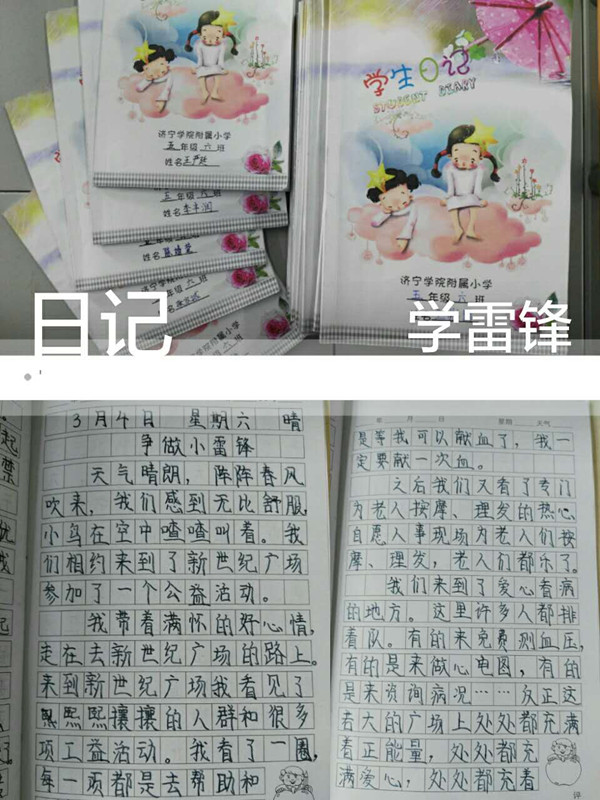 济宁学院附属小学
五年级六班
姓名
五年级六班
姓名
姓名
学生日记
STUDENT DIARY
济宁学院附属小学
五年级六班
日记
学雷锋
3月4日 星期六 晴
争做小雷锋
天气晴朗，阵阵春风
吹来，我们感到无比舒服，
小鸟在空中喳喳叫着。我
们相约来到了新世纪广场
参加了一个公益活动。
我带着满怀的好心情，
走在去新世纪广场的路上。
来到新世纪广场我看见了
熙熙熙攘攘的人群和很多
项工益活动。我看了一圈，
每一项都是去帮助和
年 月 日 星期 天气
是等我可以献血了，我一
定要献一次血。
之后我们又看了专门
为老人按摩、理发的热心
自愿人事现场为老人们按
摩、理发，老人们都乐了。
我们来到了爱心看病
的地方。这里许多人都排
着队。有的来免费测血压，
有的是来做心电图，有的
是来咨询病况……反正这
若大的广场上处处都充满
着正能量，处处都充
满爱心，处处都充着
评